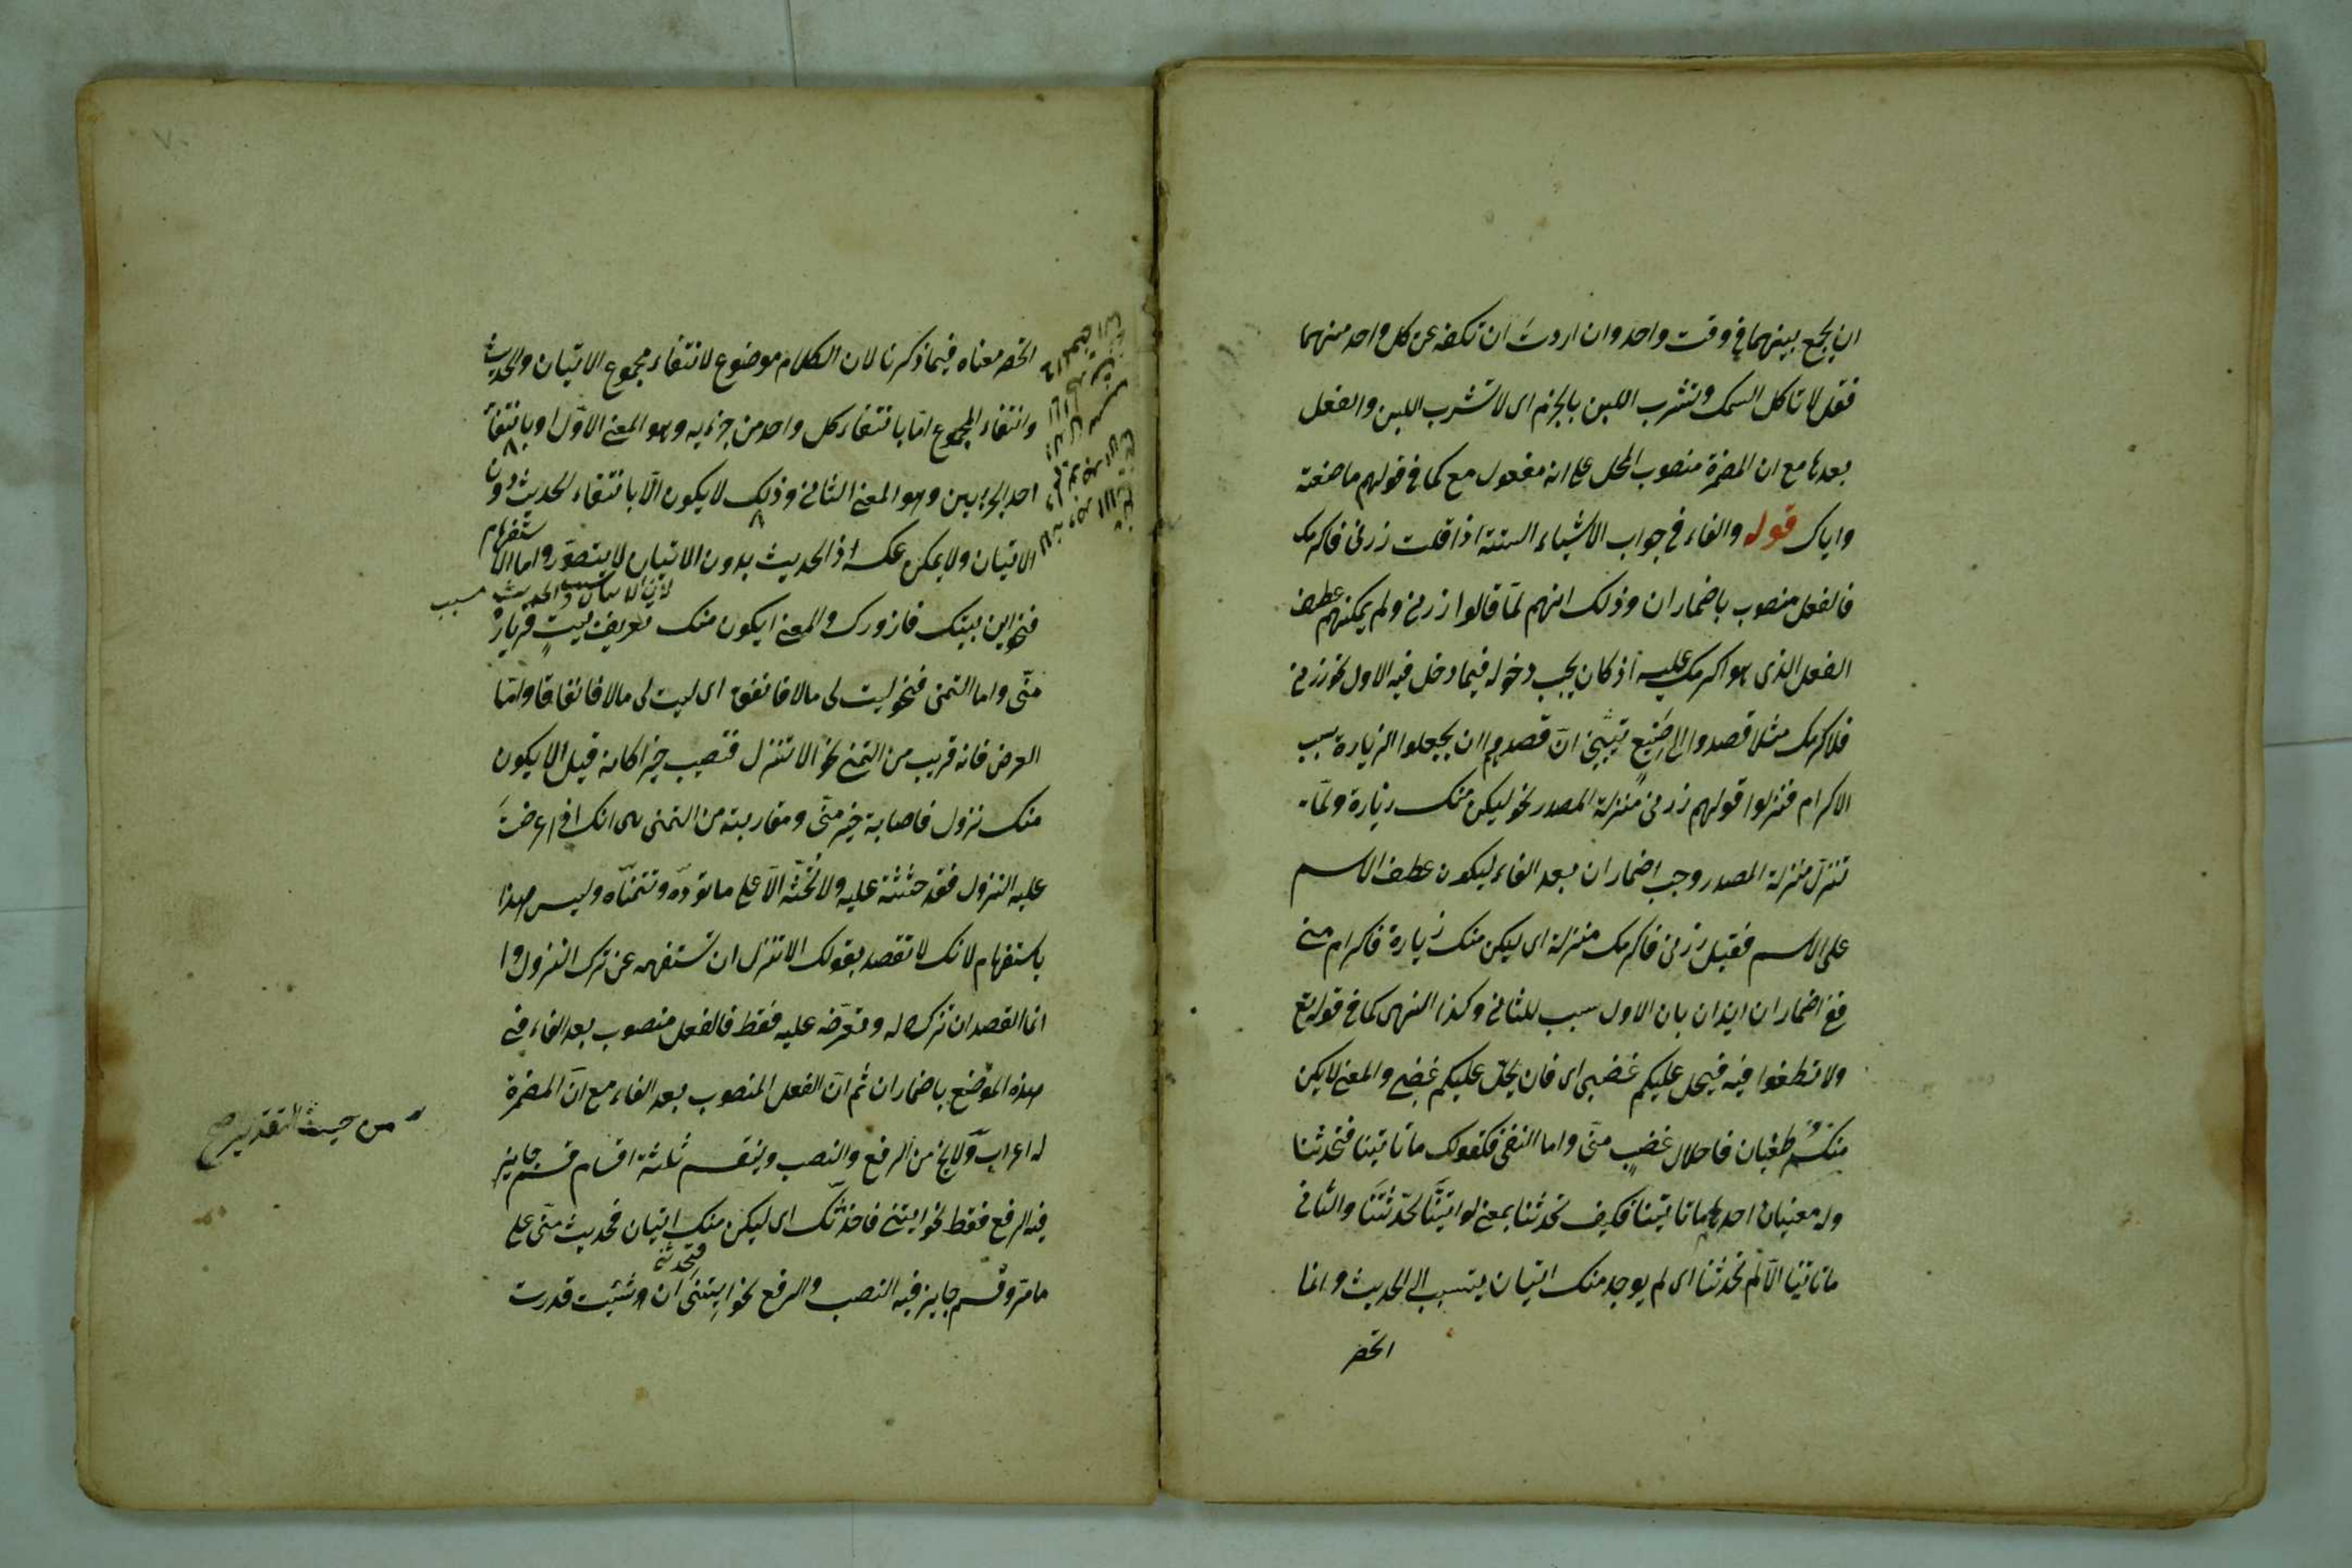 ان يجمع بينهما في وقت واحد وان اردت ان تكفه عن كل واحد منهما
فقل لا تاكل السمك وتشرب اللبن بالجزم اى لا تشرب اللبن والفعل
بعدها مع ان المضمرة منصوب المحل على انه مفعول مع كما في قولهم ما صنعت
واياك قوله والفاء في جواب الاشياء الستة اذا قلت زرنى فاكرمك
فالفعل منصوب باضمار ان وذلك انهم لمّا قالوا زرنى ولم يمكنهم عطف
الفعل الذى هو اكرمك عليه اذ كان يجب دخوله فيما دخل فيه الاول نحو زرنى
فلاكرمك مثلا قصدوا الى انّ قصدهم ان يجعلوا الزيارة سبب
الاكرام فنزلوا قولهم زرنى منزلة المصدر نحو ليكن منك زيارة ولمّا
تنزل منزلة المصدر وجب اضمار ان بعد الفاء ليكون عطف الاسم
على الاسم فقيل زرنى فاكرمك منزلة اى ليكن منك زيارة فاكرام منى
ففى اضمار ان ايذان بان الاول سبب للثانى وكذا النهى كما في قوله تع
ولا تطغوا فيه فيحل عليكم غضبى اى فان يحلّ عليكم غضبى والمعنى لا يكن
منكم طغيان فاحلال غضب منّى واما النفى فكقولك ما تاتينا فتحدثنا
وله معنيان احدهما ما تاتينا فكيف تحدثنا بمعنى لو اتيتنا لحدّثتنا والثانى
ما تاتينا الّا لم تحدثنا اى لم يوجد منك اتيان يتسبب الى الحديث وانما
انحصر
انحصر معناه فيما ذكرنا لان الكلام موضوع لانتفاء مجموع الاتيان والحديث
وانتفاء المجموع امّا بانتفاء كل واحد من جزئيه وهو المعنى الاوّل او بانتفاء
احد الجزئين وهو المعنى الثانى وذلك لا يكون الّا بانتفاء الحديث دون
الاتيان ولا يمكن عكسه اذ الحديث بدون الاتيان لا يتصوّر واما الاستفهام
لان الاتيان سبب والحديث مسبب
فنحو اين بيتك فازورك والمعنى ايكون منك تعريف بيتٍ فزيارة
منّى واما التمنى فنحو ليت لى مالا فانفق اى ليت لى مالا فانفاقا وامّا
العرض فانه قريب من التمنى نحو الا تنزل فتصيب خيرا كانه قيل الا يكون
منك نزول فاصابة خير منّى ومقاربته من التمنى هى انك اذا عرضتَ
عليه النزول فقد حثثته عليه ولا تحثّه الّا على ما تودّه وتتمنّاه وليس هذا
باستفهام لانك لا تقصد بقولك الا تنزل ان تستفهمه عن ترك النزول وا
انما القصد ان تنزله وتعرضه عليه فقط فالفعل منصوب بعد الفاء في
هذه المواضع باضمار ان ثم انّ الفعل المنصوب بعد الفاء مع انّ المضمرة
له اعراب ولا يخ من الرفع والنصب وينقسم ثلثة اقسام قسم جايز
من حيث التقدير صح
فيه الرفع فقط نحو ايتنى فاحدّثك اى ليكن منك اتيان فحديث منّى على
فتحدثنى
ما مرّ وقسم جايز فيه النصب والرفع نحو ايتنى ان شئت قدرت